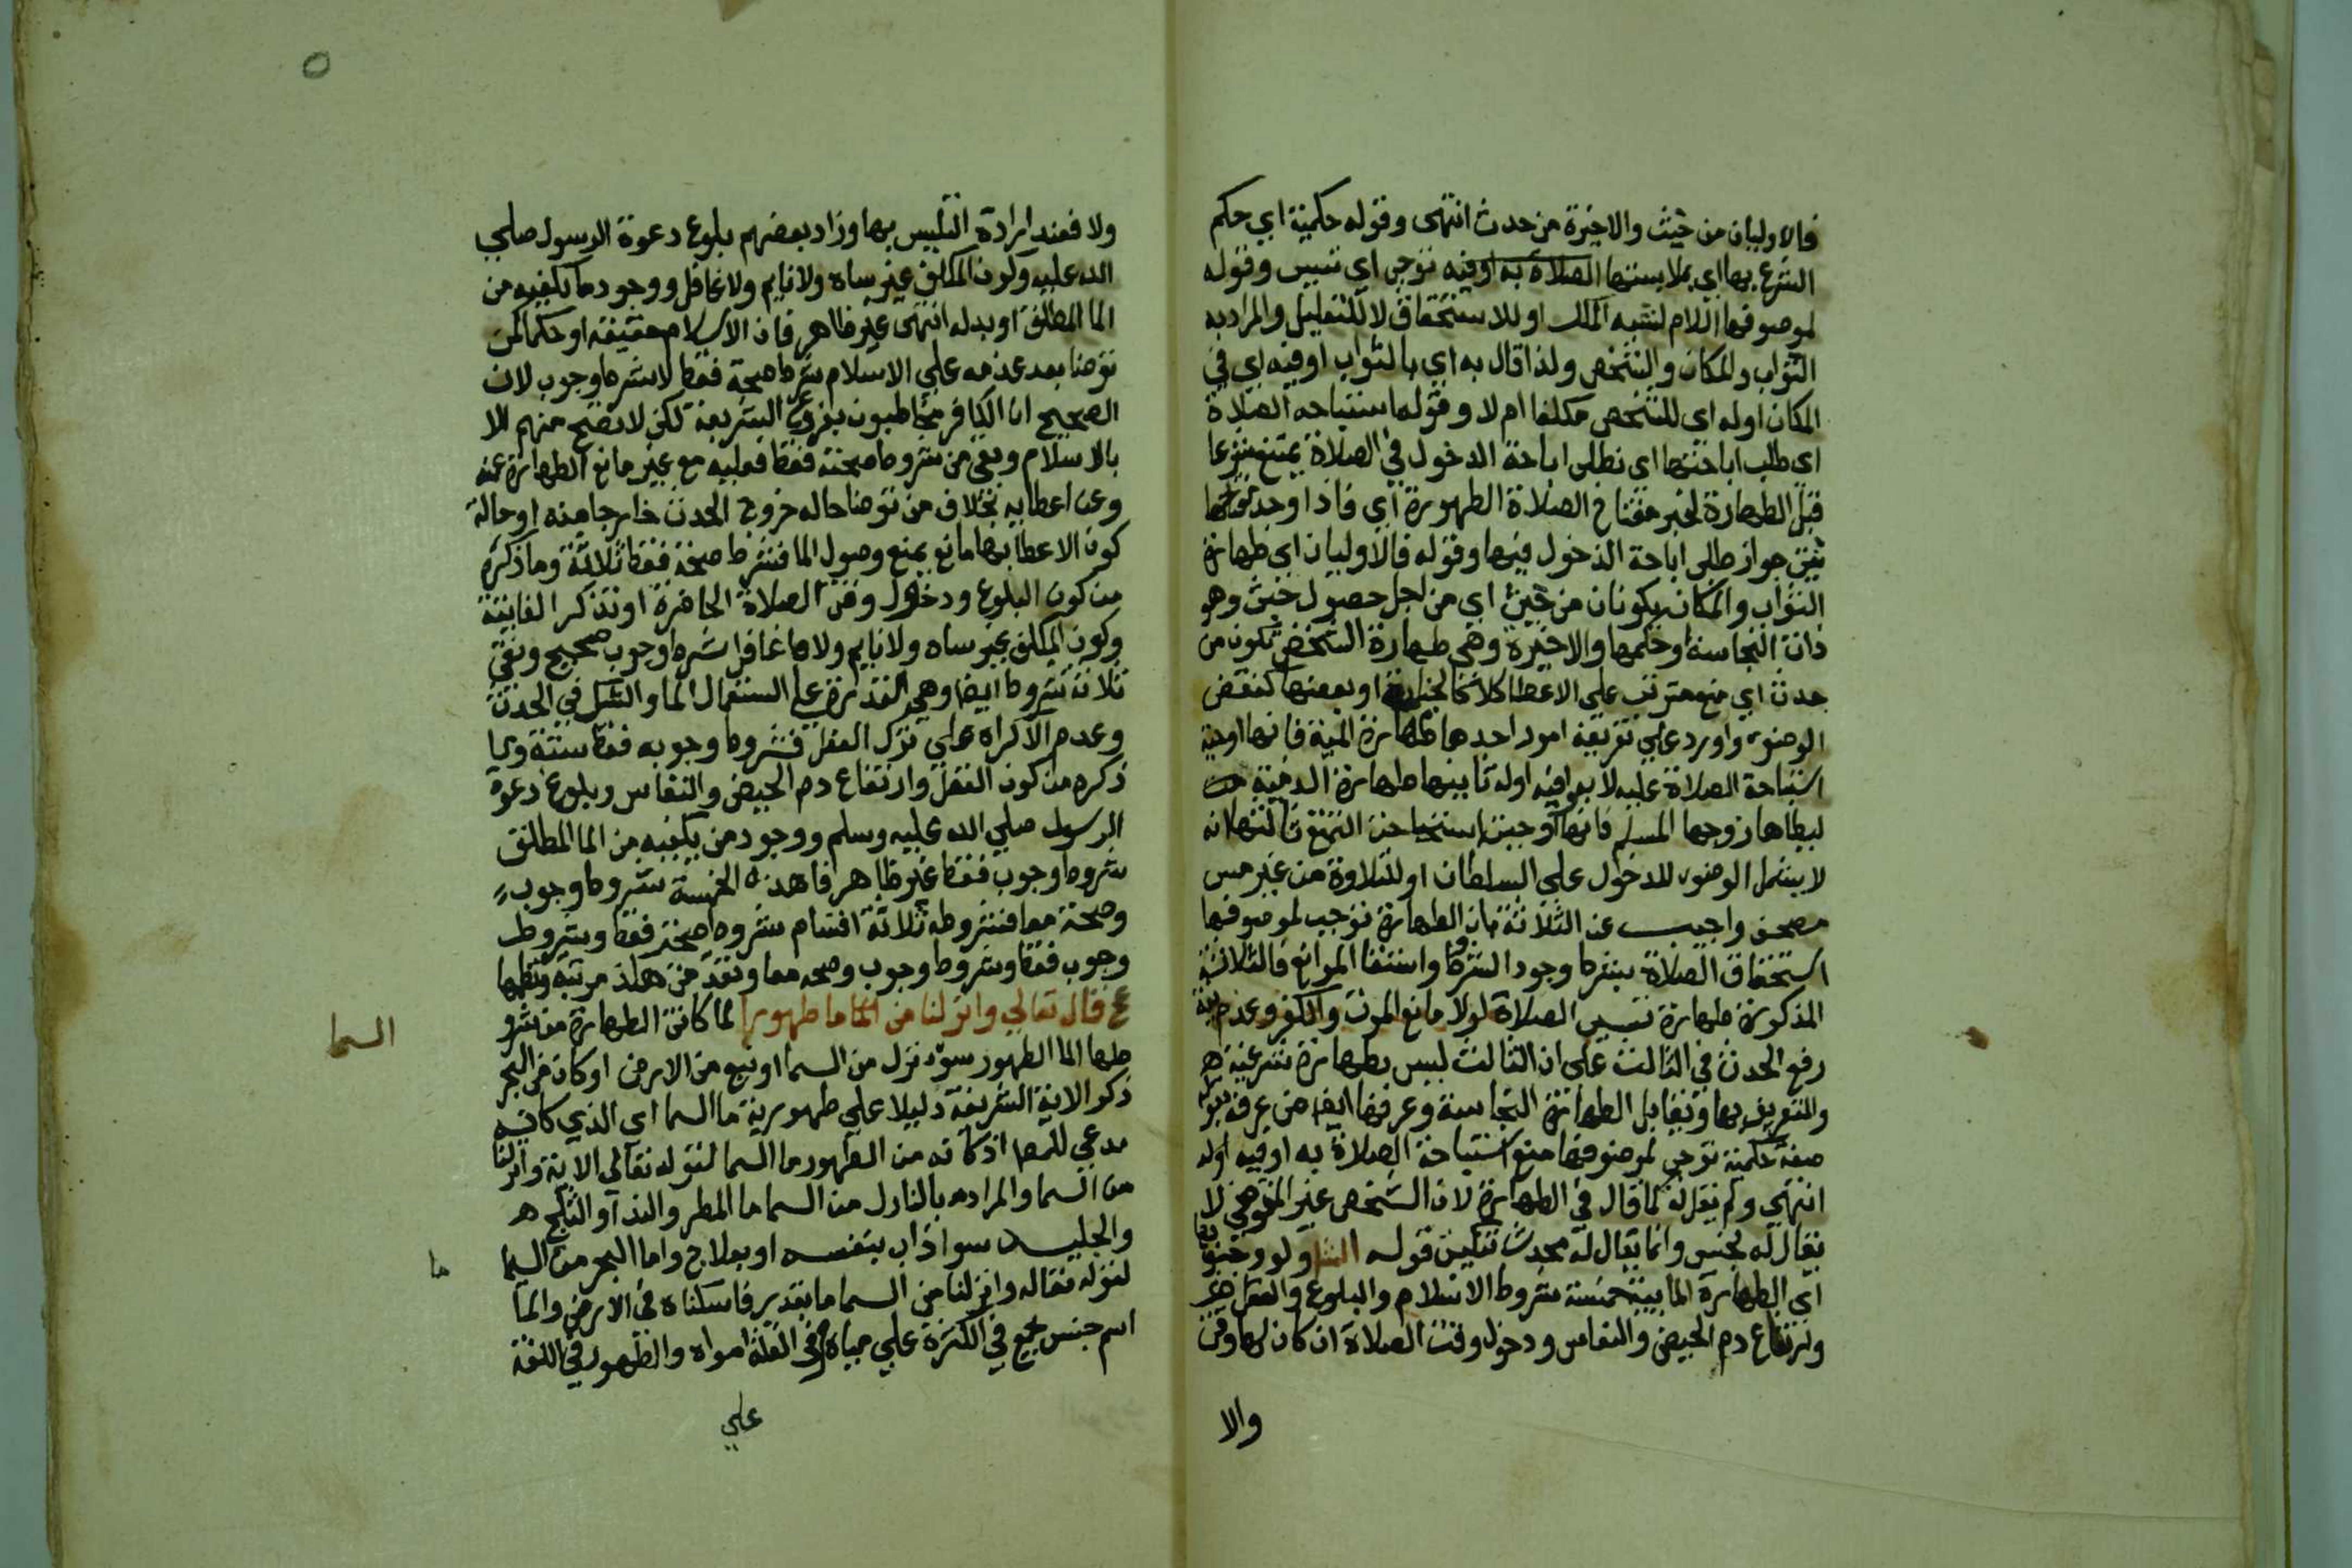 فالاوليان من خبث والاخيرة من حدث انتهى وقوله حكمية اي حكم
الشرع بها اي بملابستها الصلاة به او فيه توجب اي تسبب وقوله
لموصوفها اللام لشبه الملك او للاستحقاق لا للتعليل والمراد به
الثواب والمكان والشخص ولذا قال به اي بالثواب او فيه اي في
المكان او له اي للشخص مكلفا ام لا وقوله استباحه الصلاة
اي طلب اباحتها اي نطلب اباحة الدخول في الصلاة يمتنع شرعا
قبل الطهارة لخبر مفتاح الصلاة الطهورة اي فاذا وجد مفتاحها
ثبت جواز طلب اباحة الدخول فيها وقوله فالاوليان اي طهارة
الثواب والمكان يكونان من خبث اي من اجل حصول خبث وهو
ذات النجاسة او حكمها والاخيرة وهي طهارة الشخص تكون من
حدث اي منع مترتب على الاعضا كلا كالجنابة او بعضها كنقض
الوضوء واورد على تعريفه امور احدها طهارة الميت فانها اوجبت
استباحة الصلاة عليه لا به او فيه او له ثانيها طهارة الذمية من
ليطاها زوجها المسلم فانها اوجبت استباحة التمتع ثالثها انه
لا يشمل الوضوء للدخول على السلطان او للتلاوة من غير مس
مصحف واجيب عن الثلاثة بان الطهارة توجب لموصوفها
استحقاق الصلاة بشرط وجود الشروط وانتفا الموانع فالثلاثة
المذكورة طهارة تسبب الصلاة لولا مانع الموت والكفر وعدم نية
رفع الحدث في الثالث على ان الثالث ليس بطهارة شرعية ه
والتعريف بها وتقابل الطهارة النجاسة وعرفها ايضا ابن عرفة بقوله
صفة حكمية توجب لموصوفها منع استباحة الصلاة به او فيه اوله
انتهى ولم يقل له كما قال في الطهارة لان الشخص غير المتوضي لا
يقال له نجس وانما يقال له محدث قوله ولو وجوبها
اي الطهارة المايية خمسة شروط الاسلام والبلوغ والعقل
وارتفاع دم الحيض والنفاس ودخول وقت الصلاة ان كان لها وقت
والا
ولا فعند ارادة التلبس بها وزاد بعضهم بلوغ دعوة الرسول صلي
الله عليه وكون المكلف غير ساه ولا نايم ولا غافل ووجود ما يكفيه من
الما المطلق او بدله انتهى غير ظاهر فان الاسلام حقيقة او حكما كمن
توضا بعد عزمه علي الاسلام شرط صحة فقط لا شرط وجوب لان
الصحيح ان الكافر مخاطبون بفروع الشريعة لكن لا تصح منهم الا
بالاسلام وبقي من شروط صحته فقط فعليه مع غير مانع الطهارة عنه
وعن اعضايه بخلاف من توضا حاله خروج الحدث خارجا منه او حالة
كون الاعضا بها مانع يمنع وصول الما فشرط صحة فقط ثلاثة وما ذكره
من كون البلوغ ودخول وقت الصلاة الحاضرة او تذكر الفايتة
وكون المكلف غير ساه ولا نايم ولا غافل شرط وجوب صحيح وبقي
ثلاثة شروط ايضا وهي القدرة علي استعمال الما والشك في الحدث
وعدم الاكراه علي ترك الفعل فشروط وجوبه فقط ستة وما
ذكره من كون العقل وارتفاع دم الحيض والنفاس وبلوغ دعوة
الرسول صلي الله عليه وسلم ووجود من يكفيه من الما المطلق
شروط وجوب فقط غير ظاهر فا هذه الخمسة شروط وجوب
وصحة معا فشروطه ثلاثة اقسام شروط صحة فقط وشروط
وجوب فقط وشروط وجوب وصحه معا
ع قال تعالي وانزلنا من الما ما طهورا لما كانت الطهارة من شرو
طها الما الطهور سوا نزل من السما او نبع من الارض او كان من البحر
ذكر الاية الشريفة دليلا علي طهورية ما السما اي الذي كافيه
مدعي للمص اذ كانه من الطهور ما السما لقوله تعالى الاية وانزلنا
من السما والمراد بالنازل من السما ما المطر والندا والثلج ه
والجليد سوا ذاب بنفسه او بعلاج واما البحر من السما
لقوله تعاله وانزلنا من السما ما بقدر فاسكناه في الارض والما
اسم جنس يجمع في الكثرة علي مياه وفي القلة امواه والطهور في اللغة
علي
السما
ما